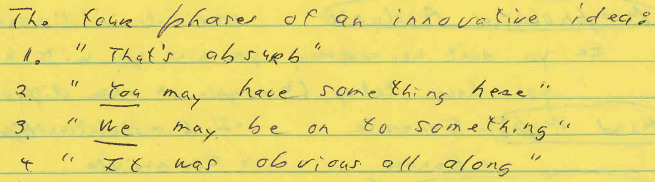 The four phases of an innovative idea:
1. "That's absurb"
2. "You may have something here"
3. "We may be on to something"
4 "It was obvious all along"